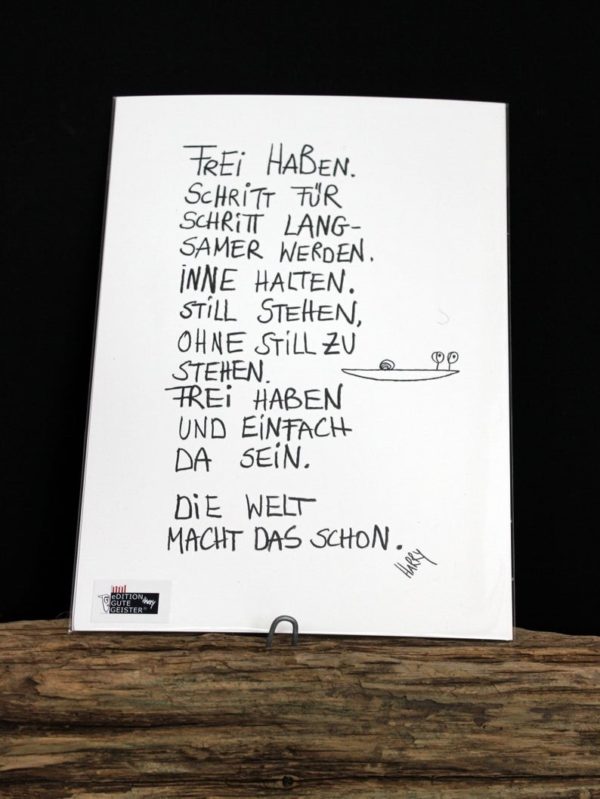 FREi HABEN.
SCHRiTT FÜR
SCHRiTT LANG-
SAMER WERDEN.
iNNE HALTEN.
STiLL STEHEN,
OHNE STiLL ZU
STEHEN.
FREi HABEN
UND EiNFACH
DA SEiN.
DiE WELT
MACHT DAS SCHON.
HARRY
eDITION
GUTE
GEISTER